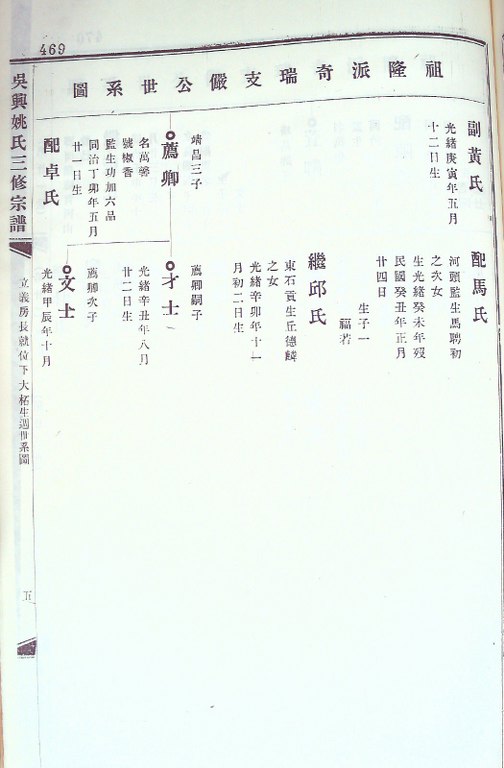 469
祖隆派奇瑞支儼公世系圖
副黃氏
光緒庚寅年五月
十二日生
靖昌三子
薦卿
名萬馨
號椒香
監生功加六品
同治丁卯年五月
廿一日生
配卓氏
配馬氏
河頭監生馬聘初
之次女
生光緒癸未年歿
民國癸丑年正月
廿四日
生子一
福若
繼邱氏
東石貢生丘德麟
之女
光緒辛卯年十一
月初二日生
薦卿嗣子
才士
光緒辛丑年八月
廿二日生
薦卿次子
文士
光緒甲辰年十月
吳興姚氏三修宗譜
立義房長就位下大柘生週世系圖
五